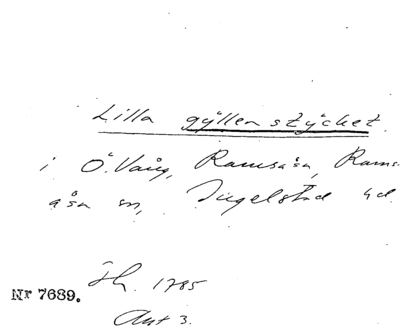 Lilla gyllenstycket
i Ö. Vång, Ramsåsa, Rams-
åsa sn, Ingelstad hd.
Sk. 1785
Nr 7689.
Akt 3.